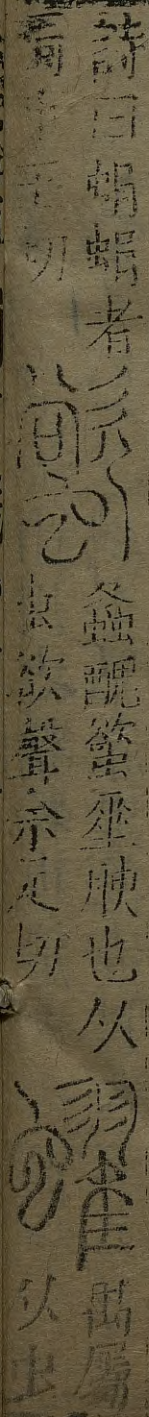 詩曰蜎蜎者
蜀市玉切
螸
螽醜螸垂腴也从
虫欲聲余足切
蠗
禺屬
从虫